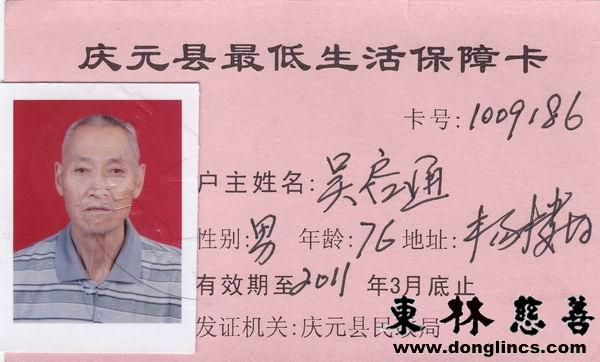 庆元县最低生活保障卡
卡号:1009186
户主姓名:吴启通
性别:男 年龄:76 地址:
有效期至2011年3月底止
发证机关:庆元县民政局
東林慈善
www.donglincs.com